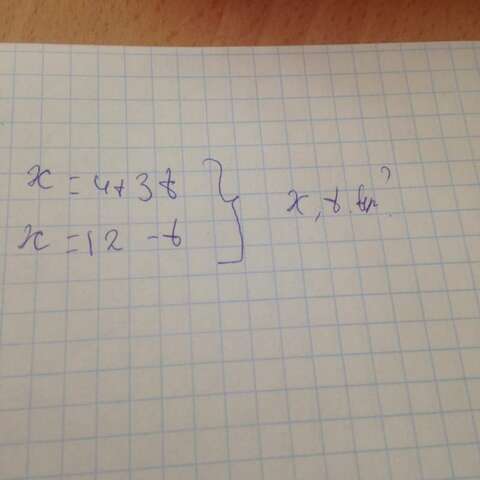 x = 4+3t
x = 12 - t
x, t